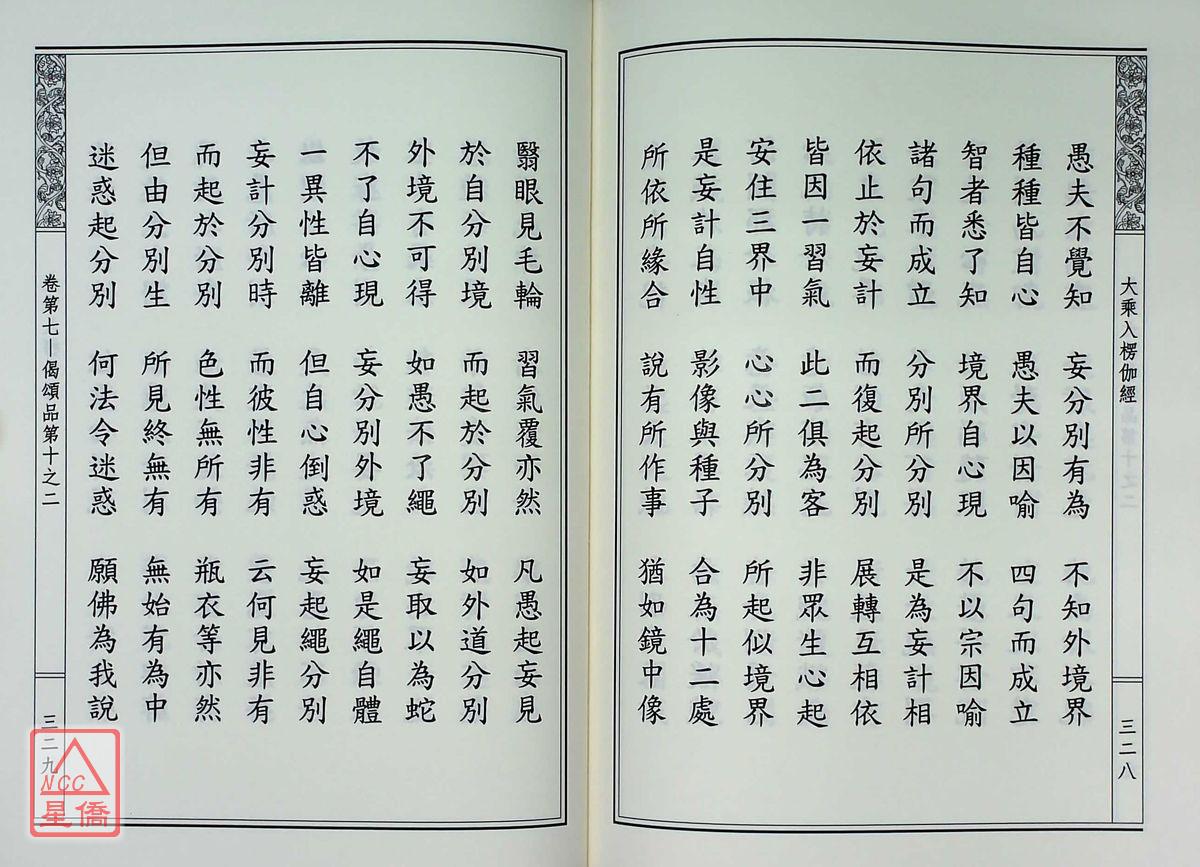 大乘入楞伽經
三二八
愚夫不覺知 妄分別有為 不知外境界
種種皆自心 愚夫以因喻 四句而成立
智者悉了知 境界自心現 不以宗因喻
諸句而成立 分別所分別 是為妄計相
依止於妄計 而復起分別 展轉互相依
皆因一習氣 此二俱為客 非眾生心起
安住三界中 心心所分別 所起似境界
是妄計自性 影像與種子 合為十二處
所依所緣合 說有所作事 猶如鏡中像
翳眼見毛輪 習氣覆亦然 凡愚起妄見
於自分別境 而起於分別 如外道分別
外境不可得 如愚不了繩 妄取以為蛇
不了自心現 妄分別外境 如是繩自體
一異性皆離 但自心倒惑 妄起繩分別
妄計分別時 而彼性非有 云何見非有
而起於分別 色性無所有 瓶衣等亦然
但由分別生 所見終無有 無始有為中
迷惑起分別 何法令迷惑 願佛為我說
卷第七—偈頌品第十之二
三二九
NCC
星僑